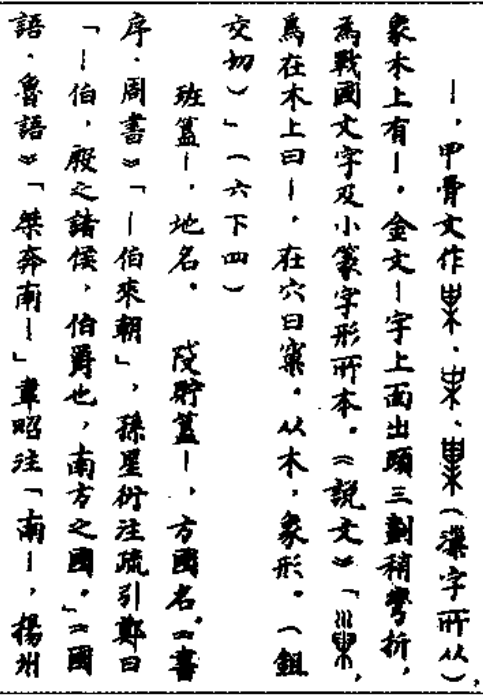 ｜，甲骨文作、、（漅字所从），
象木上有｜。金文｜字上面出頭三劃稍彎折，
為戰國文字及小篆字形所本。《說文》「，
鳥在木上曰｜，在穴曰窠。从木，象形。（鉏
交切）」（六下四）
班簋｜，地名。 㱃貯簋｜，方國名。《書
序．周書》「｜伯來朝」，孫星衍注疏引鄭曰
「｜伯，殷之諸侯，伯爵也，南方之國。」《國
語．魯語》「桀奔南｜」韋昭注「南｜，揚州